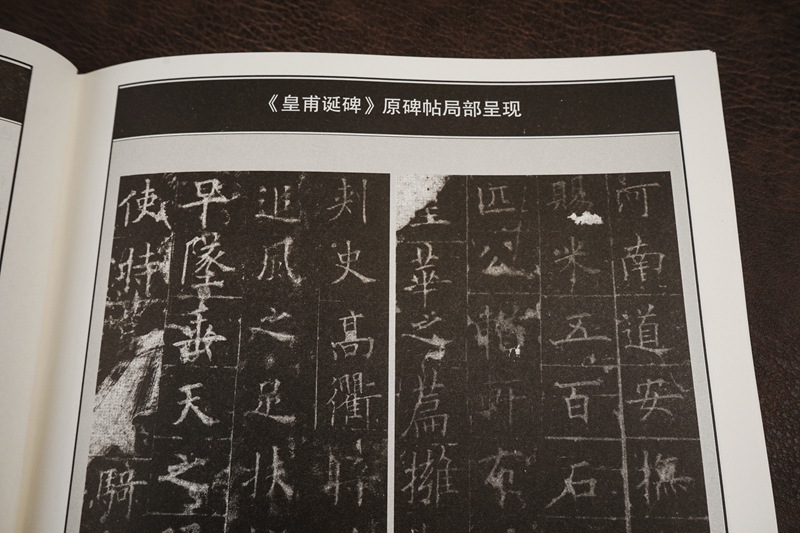 《皇甫诞碑》原碑帖局部呈现
河南道安撫
賜米五百石
匹公
華之篇擁
刺史高衢
追風之足伏
早墜垂天之
使持
騎